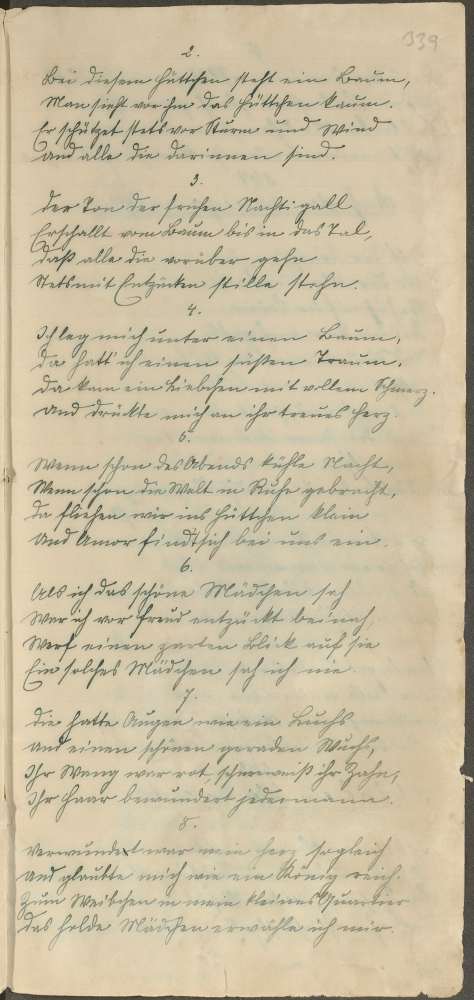 339
2.
Bei diesem Hüttchen steht ein Baum,
Man sieht vor ihm das Hüttchen kaum.
Er schützet stets vor Sturm und Wind
Und alle die darinnen sind.
3.
Der Ton der frühen Nachtigall
Erschallt vom Baum bis in das Tal,
Daß alle die vorüber gehn
Stets mit Entzücken stille stehn.
4.
Ich leg mich unter einen Baum,
Da hatt' ich einen süßen Traum.
Da kam ein Liebchen mit vollem Schmerz.
Und drückte mich an ihr treues Herz.
5.
Wenn schon des Abends kühle Nacht,
Wenn schon die Welt in Ruhe gebracht,
Da fliehen wir ins Hüttchen klein
Und Amor findt sich bei uns ein.
6.
Als ich das schöne Mädchen sah
War ich vor Freud entzückt beinah
Warf einen zarten Blick auf sie
Ein solches Mädchen sah ich nie
7.
Die hatte Augen wie ein Luchs
Und einen schönen geraden Wuchs,
Ihr Wang war rot, schneeweiß ihr Zahn,
Ihr Haar bewundert jedermann.
8.
Verwundert war mein Herz sogleich
Und glaubte mich wie ein König reich.
Zum Weibchen in mein kleines Quartier
Das holde Mädchen erwähle ich mir.